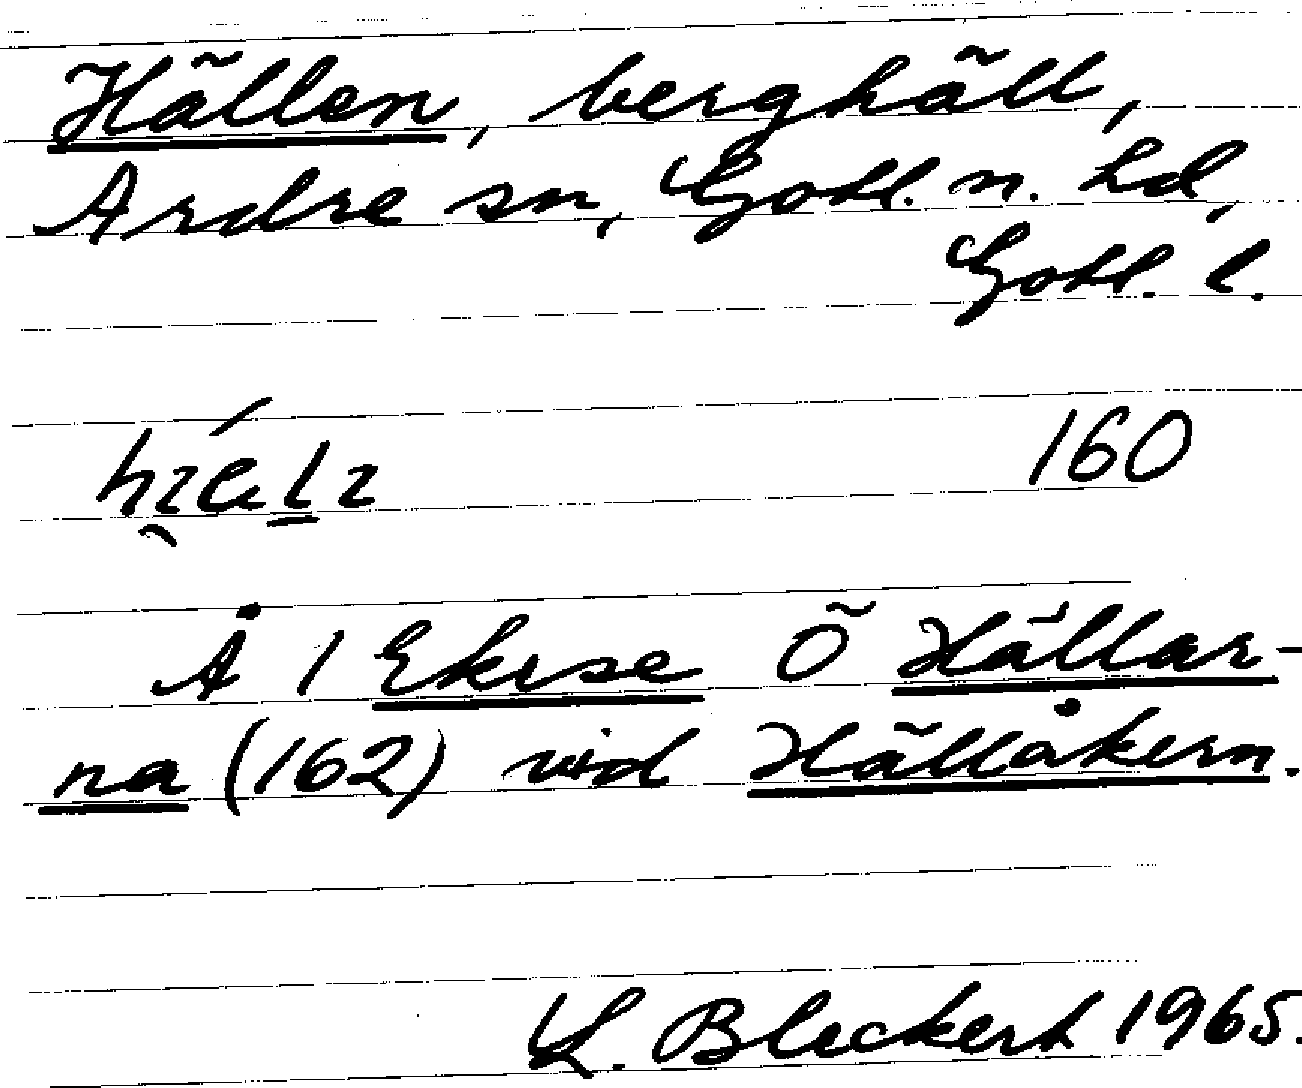 Hällen, berghäll,
Ardre sn, Gotl. n. hd,
Gotl. l.
160
Å 1 Ekese Ö Hällar-
na (162) vid Hällåkern.
L. Bleckert 1965.